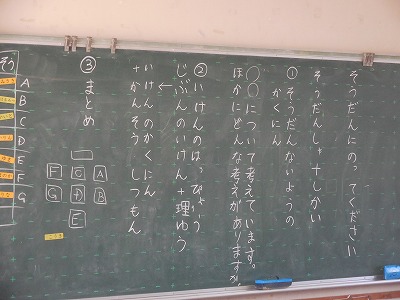 そうだんにのってください
そうだんしゃ+しかい
①そうだんないようの
かくにん
○○について考えています。
ほかにどんな考えがありますか。
②いけんのはっぴょう
じぶんのいけん+理ゆう
←
いけんのかくにん
+かんそう しつもん
③まとめ
F C A
G D B
E
A
B
C
D
E
F
G